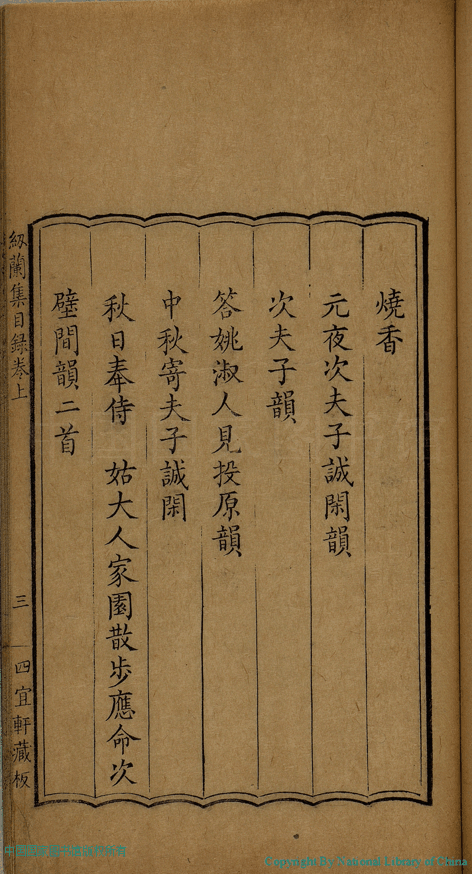 燒香
元夜次夫子誠閑韻
次夫子韻
答姚淑人見投原韻
中秋寄夫子誠閑
秋日奉侍　姑大人家園散步應命次
壁間韻二首
紉蘭集目録卷上
三
四宜軒藏板
Copyright By National Library of China